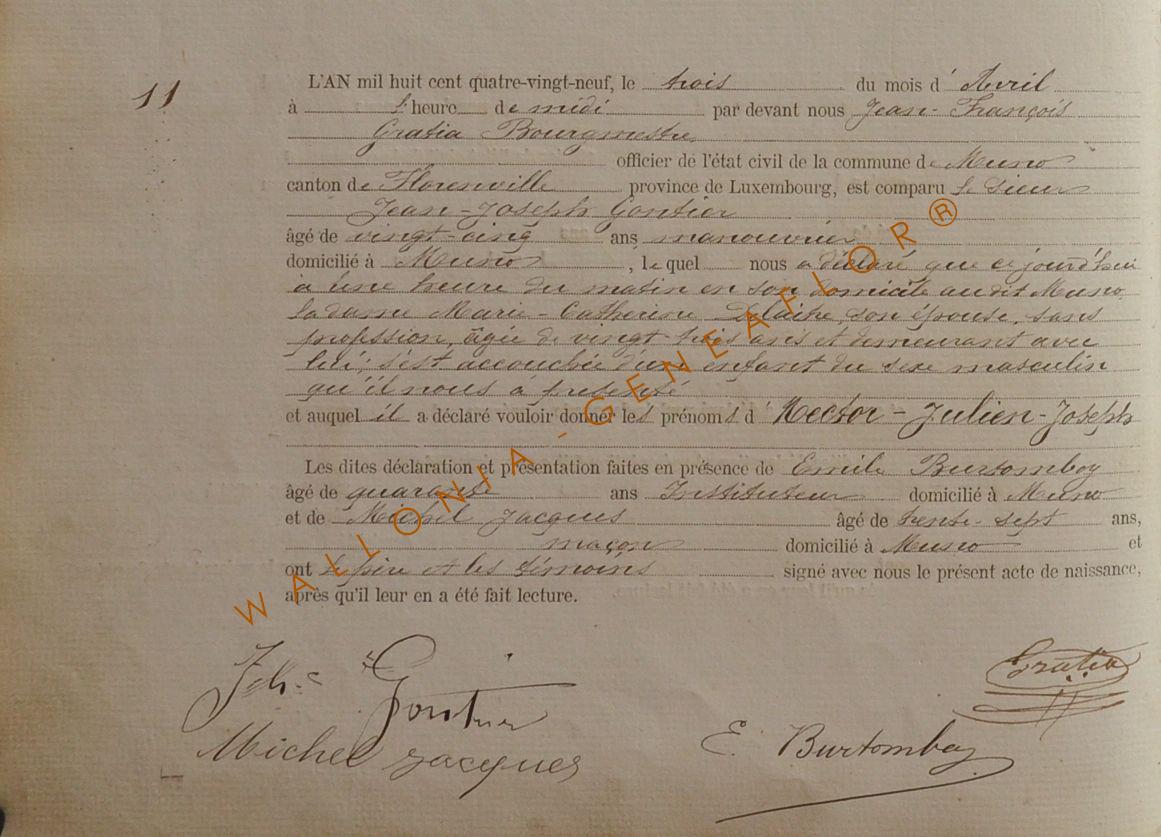 11
L'AN mil huit cent quatre-vingt-neuf, le trois du mois d' Avril
à l'heure de midi par devant nous Jean-François
Gratia Bourgmestre
officier de l'état civil de la commune de Muno
canton de Florenville province de Luxembourg, est comparu le sieur
Jean-Joseph Gontier
âgé de vingt-cinq ans manouvrier
domicilié à Muno, lequel nous a déclaré que ce jourd'hui
à une heure du matin en son domicile audit Muno,
la dame Marie-Catherine Delaite, son épouse, sans
profession, âgée de vingt trois ans et demeurant avec
lui, s'est accouchée d'un enfant du sexe masculin
qu'il nous a présenté
et auquel il a déclaré vouloir donner les prénoms d' Hector-Julien-Joseph
Les dites déclaration et présentation faites en présence de Emile Burtomboy
âgé de quarante ans Instituteur domicilié à Muno
et de Michel Jacques âgé de trente-sept ans,
maçon domicilié à Muno et
ont le père et les témoins signé avec nous le présent acte de naissance,
après qu'il leur en a été fait lecture.
Gratia
Gontier
Michel Jacques
E. Burtomboy
WALLONIA-GENEAFLOR®